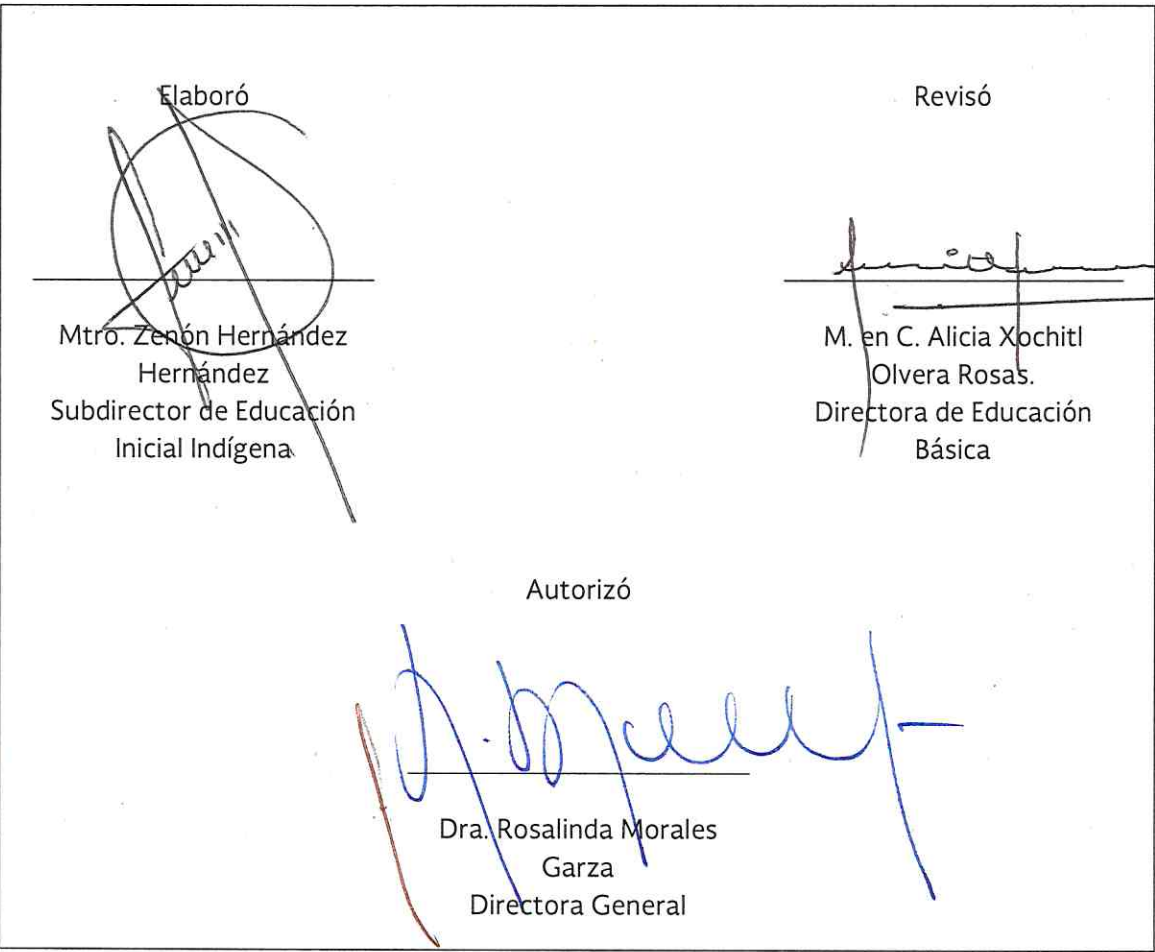 Elaboró
Mtro. Zenón Hernández
Hernández
Subdirector de Educación
Inicial Indígena
Revisó
M. en C. Alicia Xochitl
Olvera Rosas.
Directora de Educación
Básica
Autorizó
Dra. Rosalinda Morales
Garza
Directora General